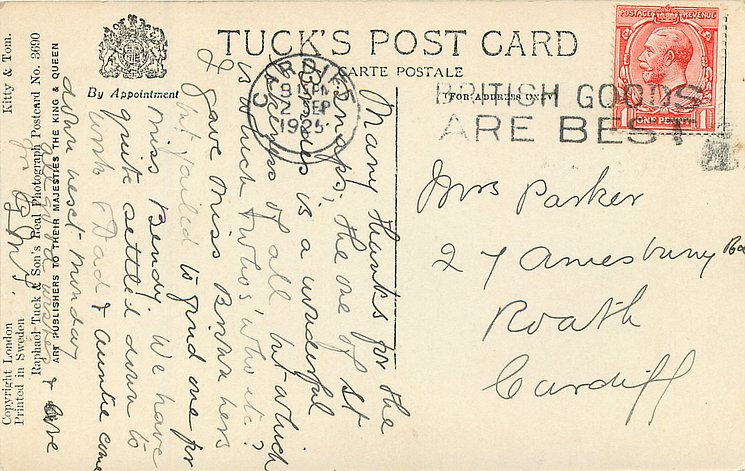 TUCK'S POST CARD
CARTE POSTALE
By Appointment
(FOR ADDRESS ONLY)
POSTAGE REVENUE
ONE PENNY
CARDIFF
8 15 PM
2 SEP
1925
BRITISH GOODS
ARE BEST
Mrs Parker
27 Amesbury Rd
Roath
Cardiff
Many thanks for the
snaps, the one of St
is a wonderful
likeness of all but which
is which & who's who etc?
I gave Miss Brown hers
but failed to find one for
Miss Bendy. We have
quite settled down to
work & Dad & Auntie come
down next Monday
wishes & love
Kitty & Tom.
Raphael Tuck & Son's Real Photograph Postcard No. 3690
ART PUBLISHERS TO THEIR MAJESTIES THE KING & QUEEN
Copyright London
Printed in Sweden